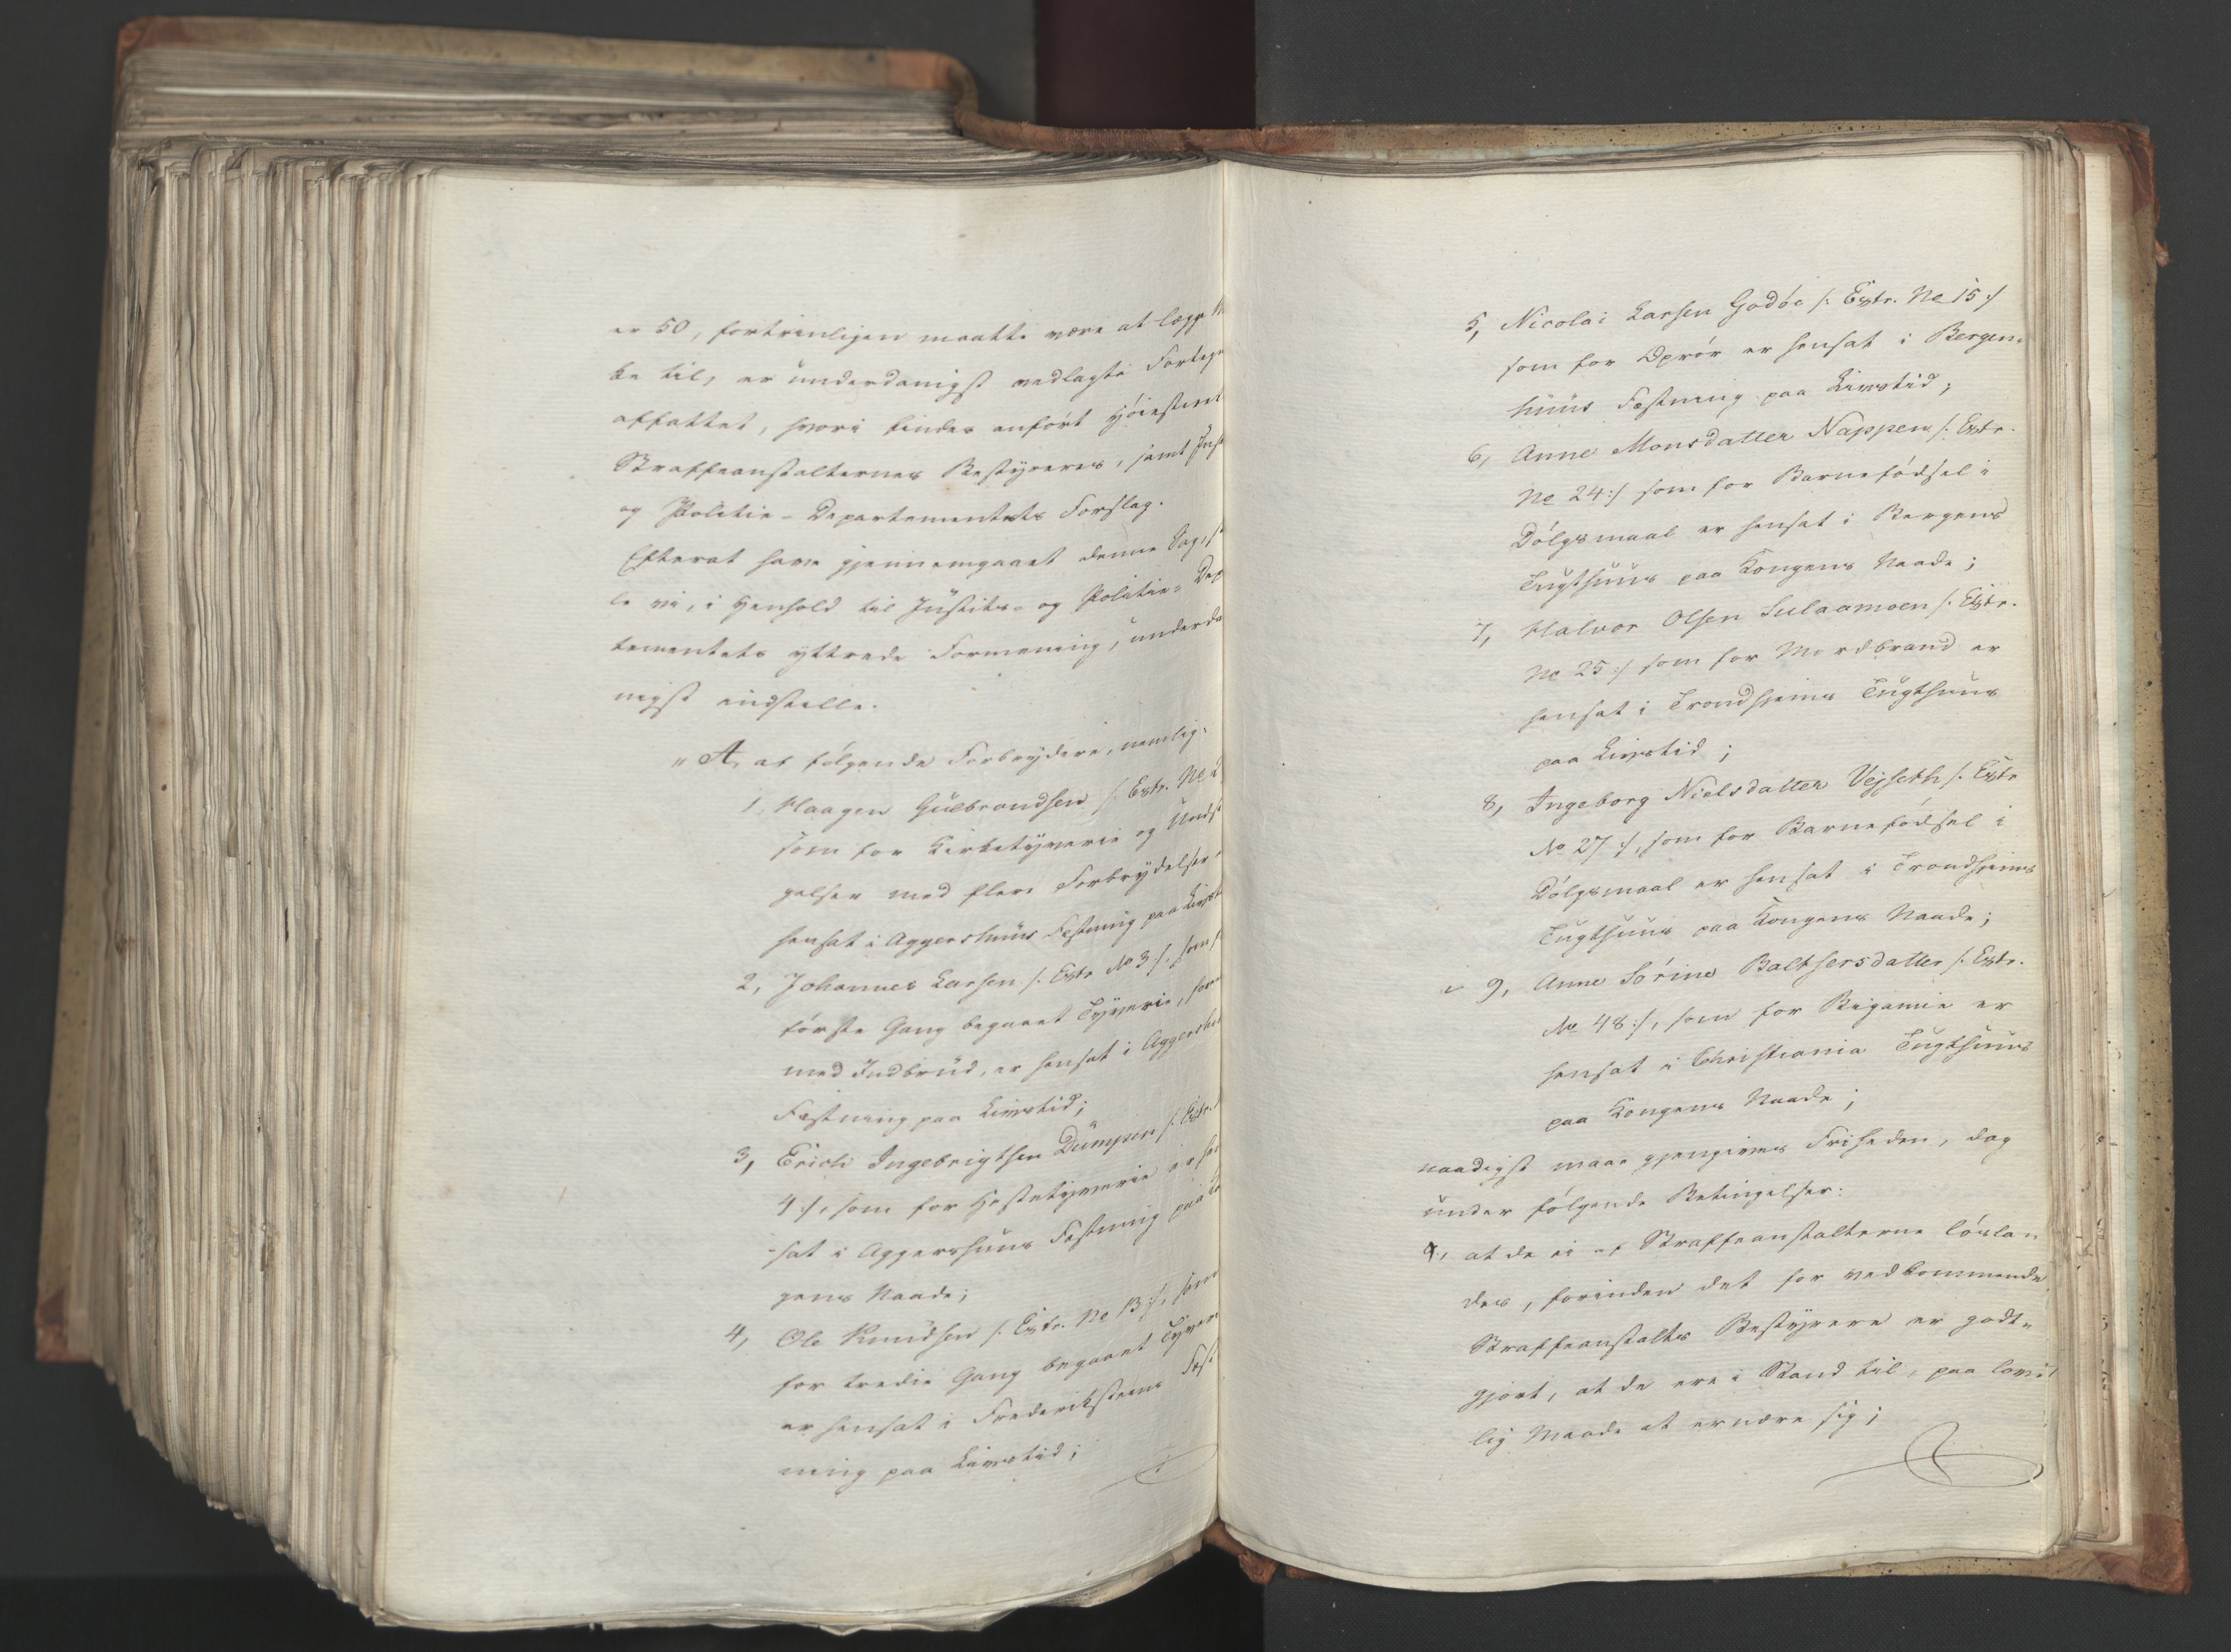 er 50, fortrinligen maatte være at lægge M
ke til, er underdanigst vedlagte Forteg
affattet, hvori findes anført Høiestiret
Straffeanstalternes Bestÿreres, samt Just
og Politie-Departementets Forslag.
Efterat have gjennemgaaet denne Sag, s
le vi, i Henhold til Justits- og Politie-Dep
tementets yttrede Formening, underda
nigst indstille:
"A, at følgende Forbrÿdere, nemlig:
1, Haagen Gulbrandsen /: Extr. No
som for Kirketÿverie og Undvi
gelser med flere Forbrÿdelser,
hensat i Aggershuus Festning paa Livst
2, Johannes Larsen /: Extr No 3 :/, som f
første Gang begaaet Tÿverie, for
med Indbrud, er hensat i Aggershu
Festning paa Livstid;
3, Erich Ingebrigtsen Dumpen /: Extr.
4 :/, som for Hestetÿverie er hen
sat i Aggershuus Festning paa Ko
gens Naade;
4, Ole Knudsen /: Extr. No 13 :/, som
for tredie Gang begaaet Tÿver
er hensat i Frederiksteens Fæst
ning paa Livstid;
5, Nicolai Larsen Godøe /: Extr. No 15 :/
som for Oprør er hensat i Bergen-
huus Festning paa Livstid;
6, Anne Monsdatter Nappen /: Extr.
No 24 :/ som for Barnefødsel i
Dølgsmaal er hensat i Bergens
Tugthuus paa Kongens Naade;
7, Halvor Olsen Sulaamoen /: Extr.
No 25 :/ som for Mordbrand er
hensat i Trondhjems Tugthuus
paa Livstid;
8, Ingeborg Nielsdatter Vejseth /: Extr
No 27 :/, som for Barnefødsel i
Dølgsmaal er hensat i Trondhjems
Tugthuus paa Kongens Naade;
9, Anne Sørine Balthersdatter /: Extr.
No 48 :/, som for Bigamie er
hensat i Christiania Tugthuus
paa Kongens Naade;
naadigst maae gjengives Friheden, dog
under følgende Betingelser:
at de ei af Straffeanstalterne løsla-
des, forinden det for vedkommende
Straffeanstalts Bestÿrere er godt-
gjort, at de ere i Stand til, paa lov-
lig Maade at ernære sig;